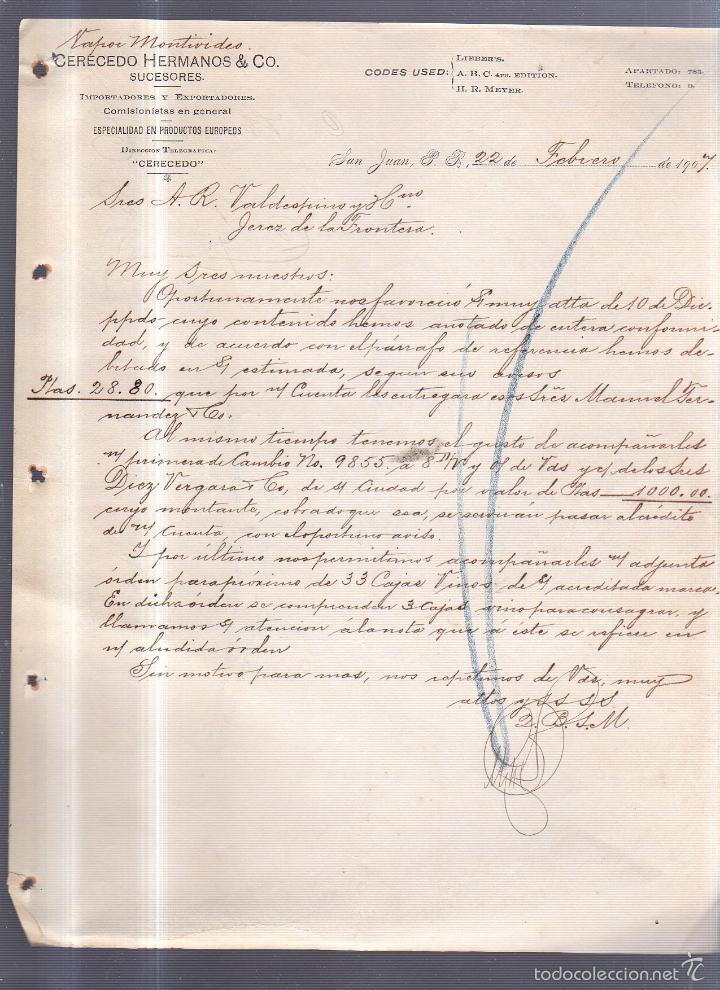 Vapor Montivideo.
CERECEDO HERMANOS & CO.
SUCESORES.
IMPORTADORES Y EXPORTADORES.
Comisionistas en general
ESPECIALIDAD EN PRODUCTOS EUROPEOS
DIRECCION TELEGRAFICA:
"CERECEDO"
CODES USED:
LIEBER'S.
A. B. C. 4TH. EDITION.
H. R. MEYER.
APARTADO: 783.
TELEFONO: 9.
San Juan, P. R., 22 de Febrero de 1907.
Sres A. R. Valdespino y Hno
Jerez de la Frontera.
Muy Sres nuestros:
Oportunamente nos favoreció muy atta de 10 de Dic.
ppdo cuyo contenido hemos anotado de entera conformi-
dad, y de acuerdo con el párrafo de referencia hemos de-
bitado en S/ estimada, segun sus avisos
Ptas. 28.80. que por n/ Cuenta les entregara esos Sres Manuel Fer-
nandez & Co.
Al mismo tiempo tenemos el gusto de acompañarles
n/ primera de Cambio No. 9855. á 8 d/v y o/ de Vds y c/ de los Sres
Diez Vergara & Co, de s/ Ciudad por valor de Ptas 1000.00.
cuyo montante, cobrado que sea, se serviran pasar al crédito
de n/ Cuenta, con el oportuno aviso.
Y por último nos permitimos acompañarles n/ adjunta
órden para próximo de 33 Cajas Vinos de S/ acreditada marca.
En dicha órden se comprenden 3 Cajas vino para consagrar, y
llamamos S/ atencion á la nota que á éste se refiere en
n/ aludida órden
Sin motivo para mas, nos repetimos de Vds, muy
attos y S. S. S.
Q. B. S. M.
todocoleccion.net